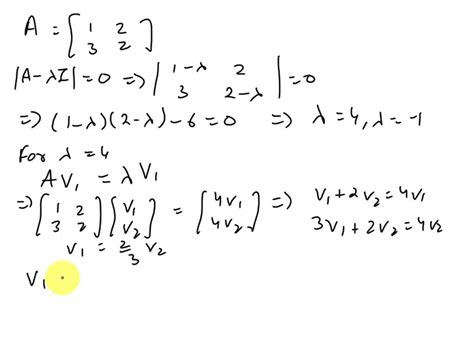 A = [1 2
3 2]
|A-λI| = 0 => |1-λ 2
3 2-λ| = 0
=> (1-λ)(2-λ) - 6 = 0 => λ = 4, λ = -1
For λ = 4
A V₁ = λ V₁
=> [1 2
3 2] [V₁
V₂] = [4V₁
4V₂] => V₁ + 2V₂ = 4V₁
3V₁ + 2V₂ = 4V₂
V₁ = 2/3 V₂
V₁